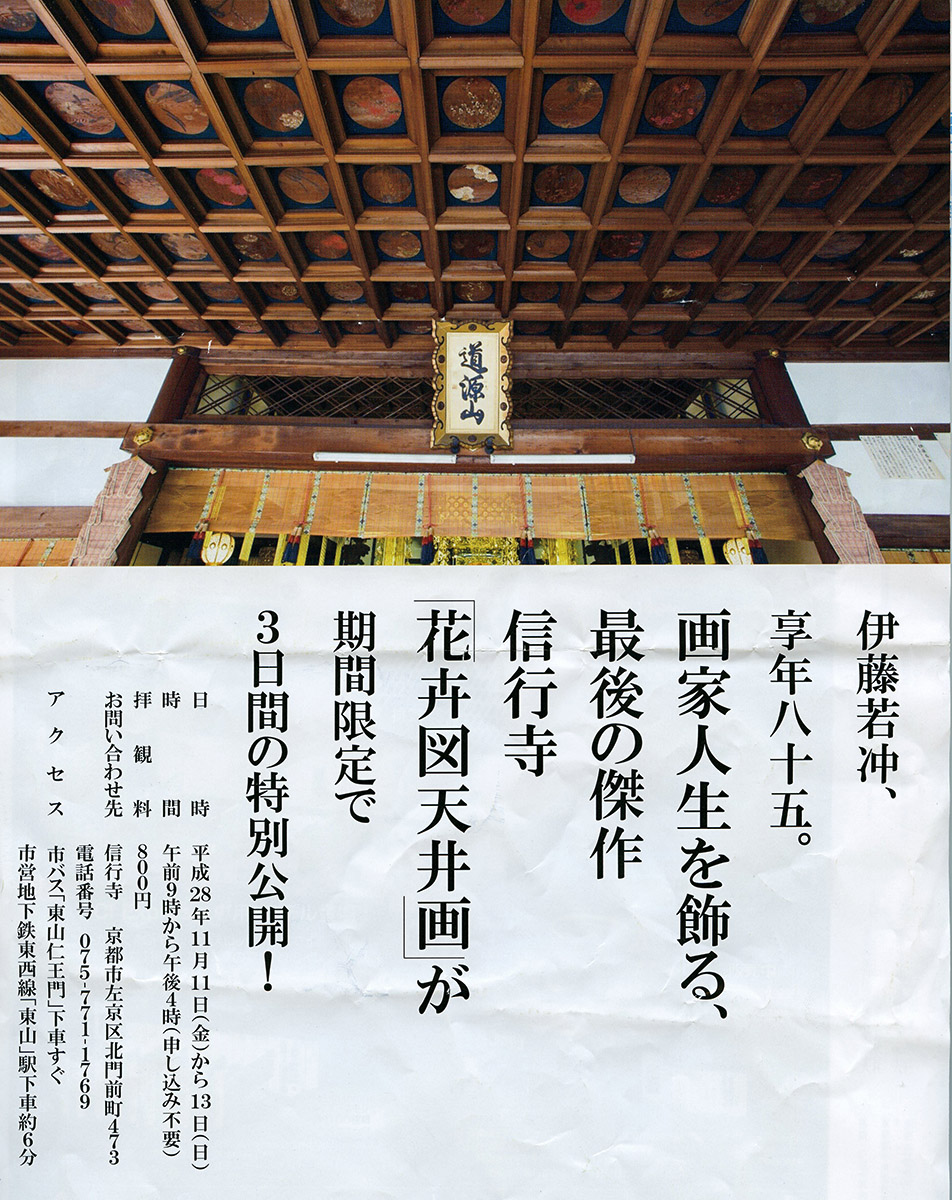 道源山
伊藤若冲、
享年八十五。
画家人生を飾る、
最後の傑作
信行寺
「花卉図天井画」が
期間限定で
3日間の特別公開！
日時 平成28年11月11日(金)から13日(日)
時間 午前9時から午後4時(申し込み不要)
拝観料 800円
お問い合わせ先 信行寺 京都市左京区北門前町473
電話番号 075-771-1769
アクセス 市バス「東山仁王門」下車すぐ
市営地下鉄東西線「東山」駅下車約6分